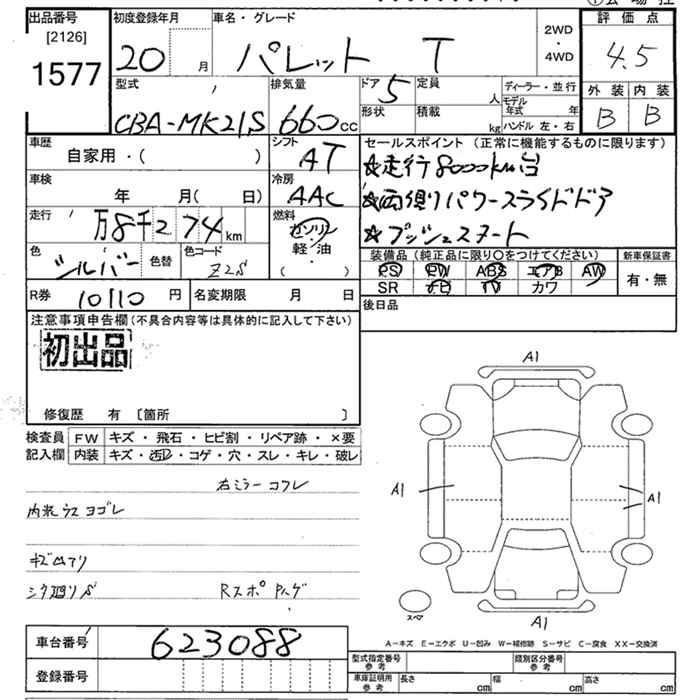 出品番号 初度登録年月 車名・グレード 2WD・4WD 評価点
[2126]
1577 20 月 パレット T 4.5
型式 排気量 ドア 定員 ディーラー・並行 外装 内装
CBA-MK21S 660cc 5 人 モデル年式 年 B B
形状 積載 kg ハンドル 左・右
車歴 シフト セールスポイント (正常に機能するものに限ります)
自家用・( ) AT ★走行8000km台
車検 冷房
年 月( 日) AAC ★両側パワースライドドア
走行 燃料
万8千274km ガソリン ★プッシュスタート
軽油
色 色替 色コード ( ) 装備品 (純正品に限り○をつけてください) 新車保証書
シルバー Z2S PS PW ABS エアB AW 有・無
R券 名変期限 SR ナビ TV カワ
10110 円 月 日 後日品
注意事項申告欄 (不具合内容等は具体的に記入して下さい)
初出品
修復歴 有 [箇所 ]
検査員 FW キズ・飛石・ヒビ割・リペア跡・×要
記入欄 内装 キズ・汚レ・コゲ・穴・スレ・キレ・破レ
右ミラーコワレ
内装ウスヨゴレ
キズ凹アリ
A1
A1
A1
A1
スペア
A-キズ E-エクボ U-凹み W-補修跡 S-サビ C-腐食 XX-交換済
車台番号 623088
登録番号
型式指定番号 参考 類別区分番号 参考
車庫証明用 参考 長さ cm 幅 cm 高さ cm